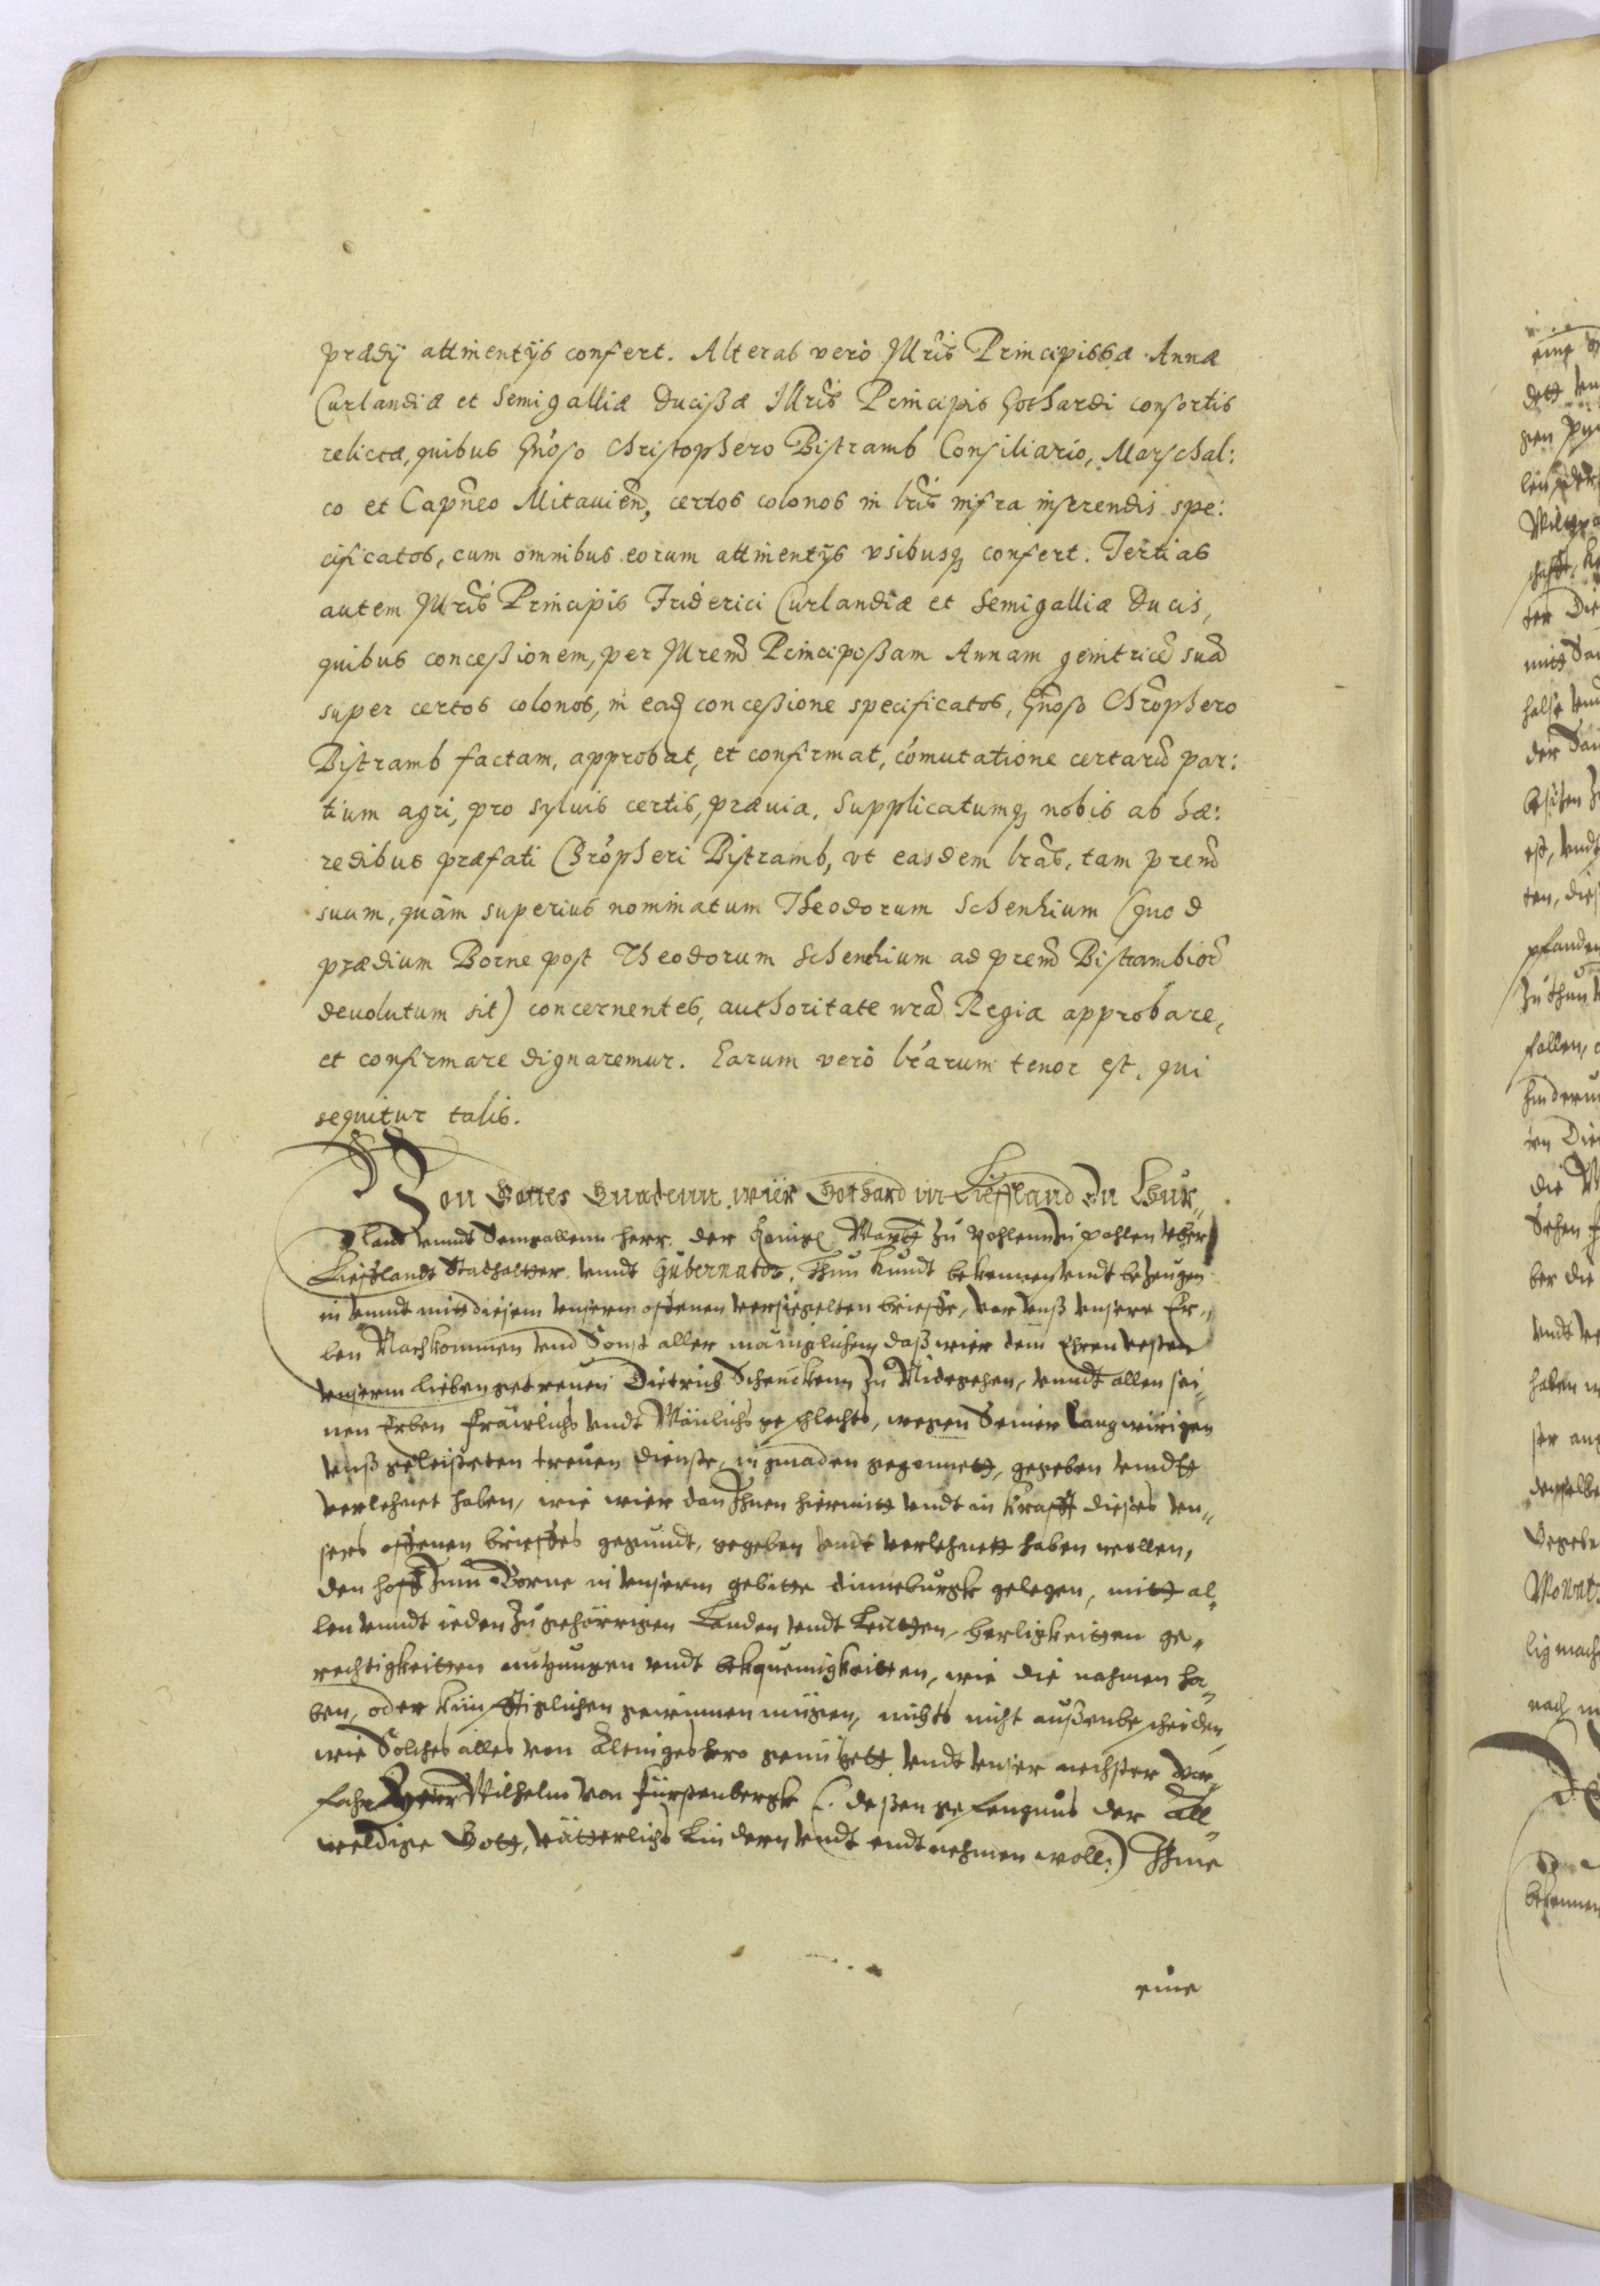 prædij attinentijs confert. Alteras verò Illris Principissæ Annæ
Curlandiæ et Semigalliæ Ducißæ Illris Principis Gothardi consortis
relictæ, quibus Gnoso Christophero Bistramb Consiliario, Marschal:
co et Capneo Mitauien, certos colonos in lris infra inserendis spe:
cificatos, cum omnibus eorum attinentijs vsibusq confert. Tertias
autem Illris Principis Friderici Curlandiæ et Semigalliæ Ducis,
quibus conceßionem, per Illrem Principeßam Annam genitrice sua
super certos colonos, in ead conceßione specificatos, Gnoso Chrophero
Bistramb factam, approbat, et confirmat, comutatione certaru par:
tium agri, pro syluis certis, præuia. Supplicatumq nobis ab hæ:
redibus præfati Chropheri Bistramb, vt easdem lras, tam prem
suum, quàm superius nominatum Theodorum Schenkium (quod
prædium Borne post Theodorum Schenkium ad prem Bistrambior
deuolutum sit) concernentes, authoritate nra Regia approbare,
et confirmare dignaremur. Earum verò lrarum tenor est, qui
sequitur talis.
Von Gottes Gnadenn wier Gothard in Liefland zu Chur„
land vnndt Semgallenn Herr, der Königl Maytt zu Pohlenn in pohlen vber
Liefflandt Stadhaltter vnndt Gubernator, Thun kundt bekennen vndt bezeugen
in vnndt mitt diesem vnserm offenen versiegelten brieffe, vor vnß vnsere Er„
ben Nachkommen vnd Sonst aller männiglichem daß wier dem Ehren vesten
vnserm lieben getreuen Dietrich Schenckenn zu Nidegehen, vnndt allen sei„
nen Erben Fräwlichs vndt Mänlichs geschlechts, wegen Seiner langwirigen
vnß geleisteten treuen dienste, in gnaden gegonnett, gegeben vnndtt
verlehnet haben, wie wier dan Ihnen hiermitt vndt in krafft dieses vn„
sers offenen brieffes gegundt, gegeben vndt verlehnett haben wollen,
den hoff zum Borne in vnserm gebitte dunneburgk gelegen, mitt al„
len vnndt ieden zugehörrigen Landen vndt Leutten, herligkeitten ge„
rechtigkeitten nutzungen vndt bequemigkeitten, wie die nahmen ha„
ben, oder künfftiglichen gewinnen mügen, nichts nicht außenbescheiden,
wie Solches alles von altenigeshero genutzett vndt vnser nechster Vor„
fahr Herr Wilhelm von Fürstenbergk (: deßen gefengnus der All„
weldige Gott, vätterlichs lindern vndt endtnehmen woll:) Ihme
eine